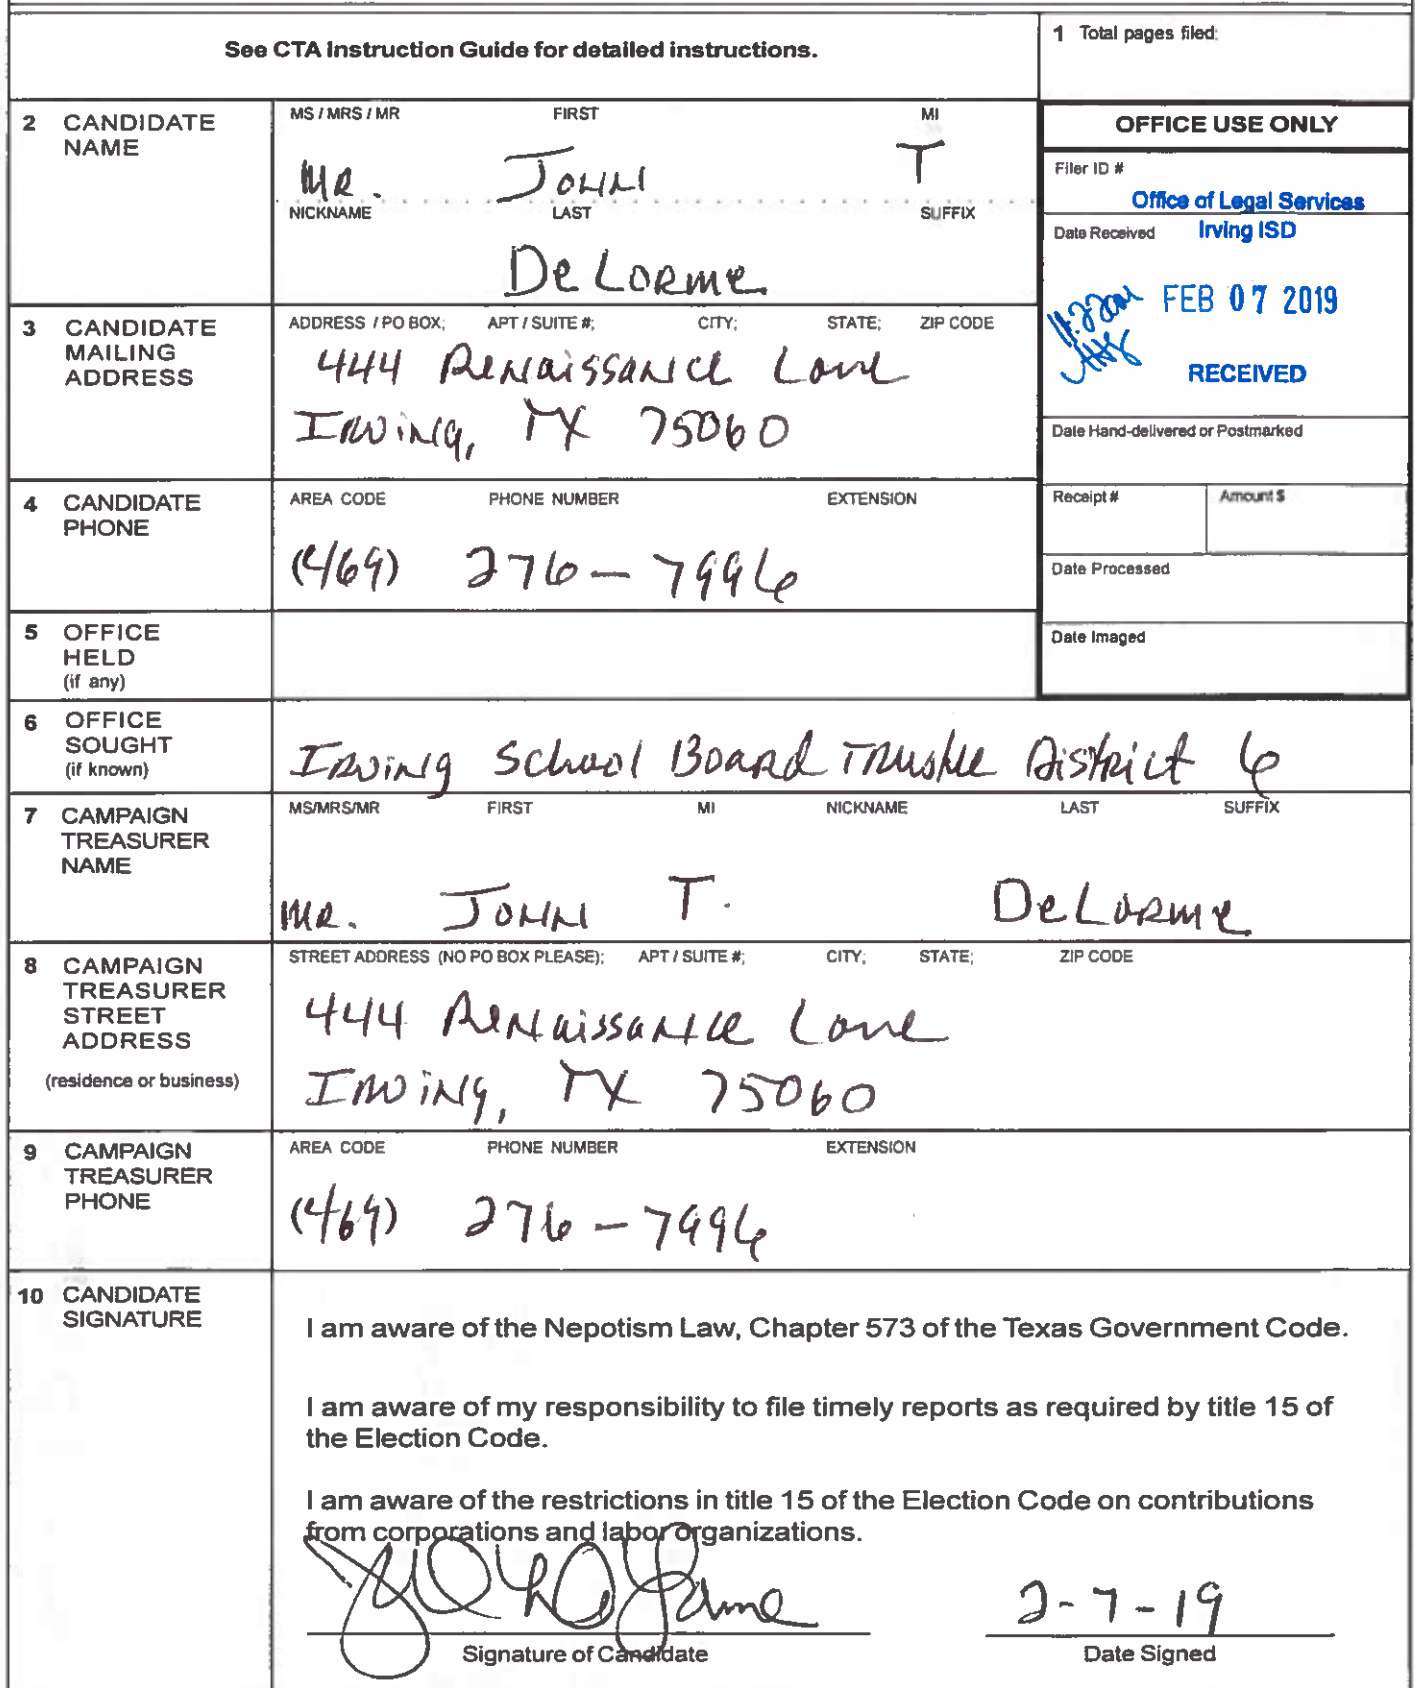 See CTA Instruction Guide for detailed instructions.
1 Total pages filed:
2 CANDIDATE NAME
MS / MRS / MR FIRST MI
MR. JOHN T
NICKNAME LAST SUFFIX
DeLorme
OFFICE USE ONLY
Filer ID #
Office of Legal Services
Date Received Irving ISD
FEB 07 2019
RECEIVED
Date Hand-delivered or Postmarked
Receipt # Amount $
Date Processed
Date Imaged
3 CANDIDATE MAILING ADDRESS
ADDRESS / PO BOX; APT / SUITE #; CITY; STATE; ZIP CODE
444 Renaissance Lane
Irving, TX 75060
4 CANDIDATE PHONE
AREA CODE PHONE NUMBER EXTENSION
(469) 276-7996
5 OFFICE HELD (if any)
6 OFFICE SOUGHT (if known)
Irving School Board Trustee District 6
7 CAMPAIGN TREASURER NAME
MS/MRS/MR FIRST MI NICKNAME LAST SUFFIX
MR. JOHN T. DeLorme
8 CAMPAIGN TREASURER STREET ADDRESS
(residence or business)
STREET ADDRESS (NO PO BOX PLEASE); APT / SUITE #; CITY; STATE; ZIP CODE
444 Renaissance Lane
Irving, TX 75060
9 CAMPAIGN TREASURER PHONE
AREA CODE PHONE NUMBER EXTENSION
(469) 276-7996
10 CANDIDATE SIGNATURE
I am aware of the Nepotism Law, Chapter 573 of the Texas Government Code.
I am aware of my responsibility to file timely reports as required by title 15 of
the Election Code.
I am aware of the restrictions in title 15 of the Election Code on contributions
from corporations and labor organizations.
2-7-19
Signature of Candidate Date Signed